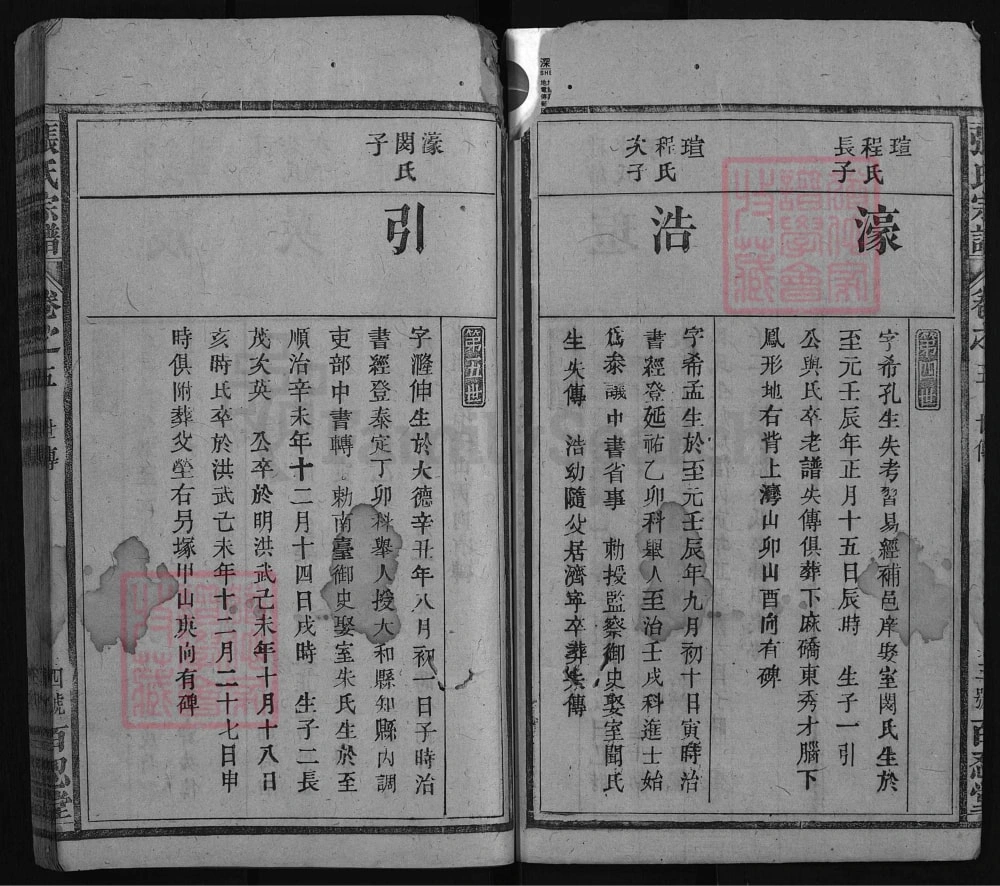 瑄
程氏
長子
濠
瑄
程氏
次子
浩
第四世
字希孔生失考習易經補邑庠娶室閔氏生於
至元壬辰年正月十五日辰時　生子一引
公與氏卒老譜失傳俱葬下麻磽東秀才腦下
鳳形地右背上灣山卯山酉向有碑
字希孟生於至元壬辰年九月初十日寅時治
書經登延祐乙卯科舉人至治壬戌科進士始
爲泰議中書省事　勅授監察御史娶室聞氏
生失傳　浩幼隨父居濟寧卒葬失傳
濠
閔氏
子
引
第五世
字漋伸生於大德辛丑年八月初一日子時治
書經登泰定丁卯科舉人授大和縣知縣內調
吏部中書轉　勅南臺御史娶室朱氏生於至
順治辛未年十二月十四日戌時　生子二長
茂次英　公卒於明洪武己未年十月十八日
亥時氏卒於洪武己未年十二月二十七日申
時俱附葬父塋右另塚甲山庚向有碑
張氏宗譜
卷之五
世傳
四號
百忍堂